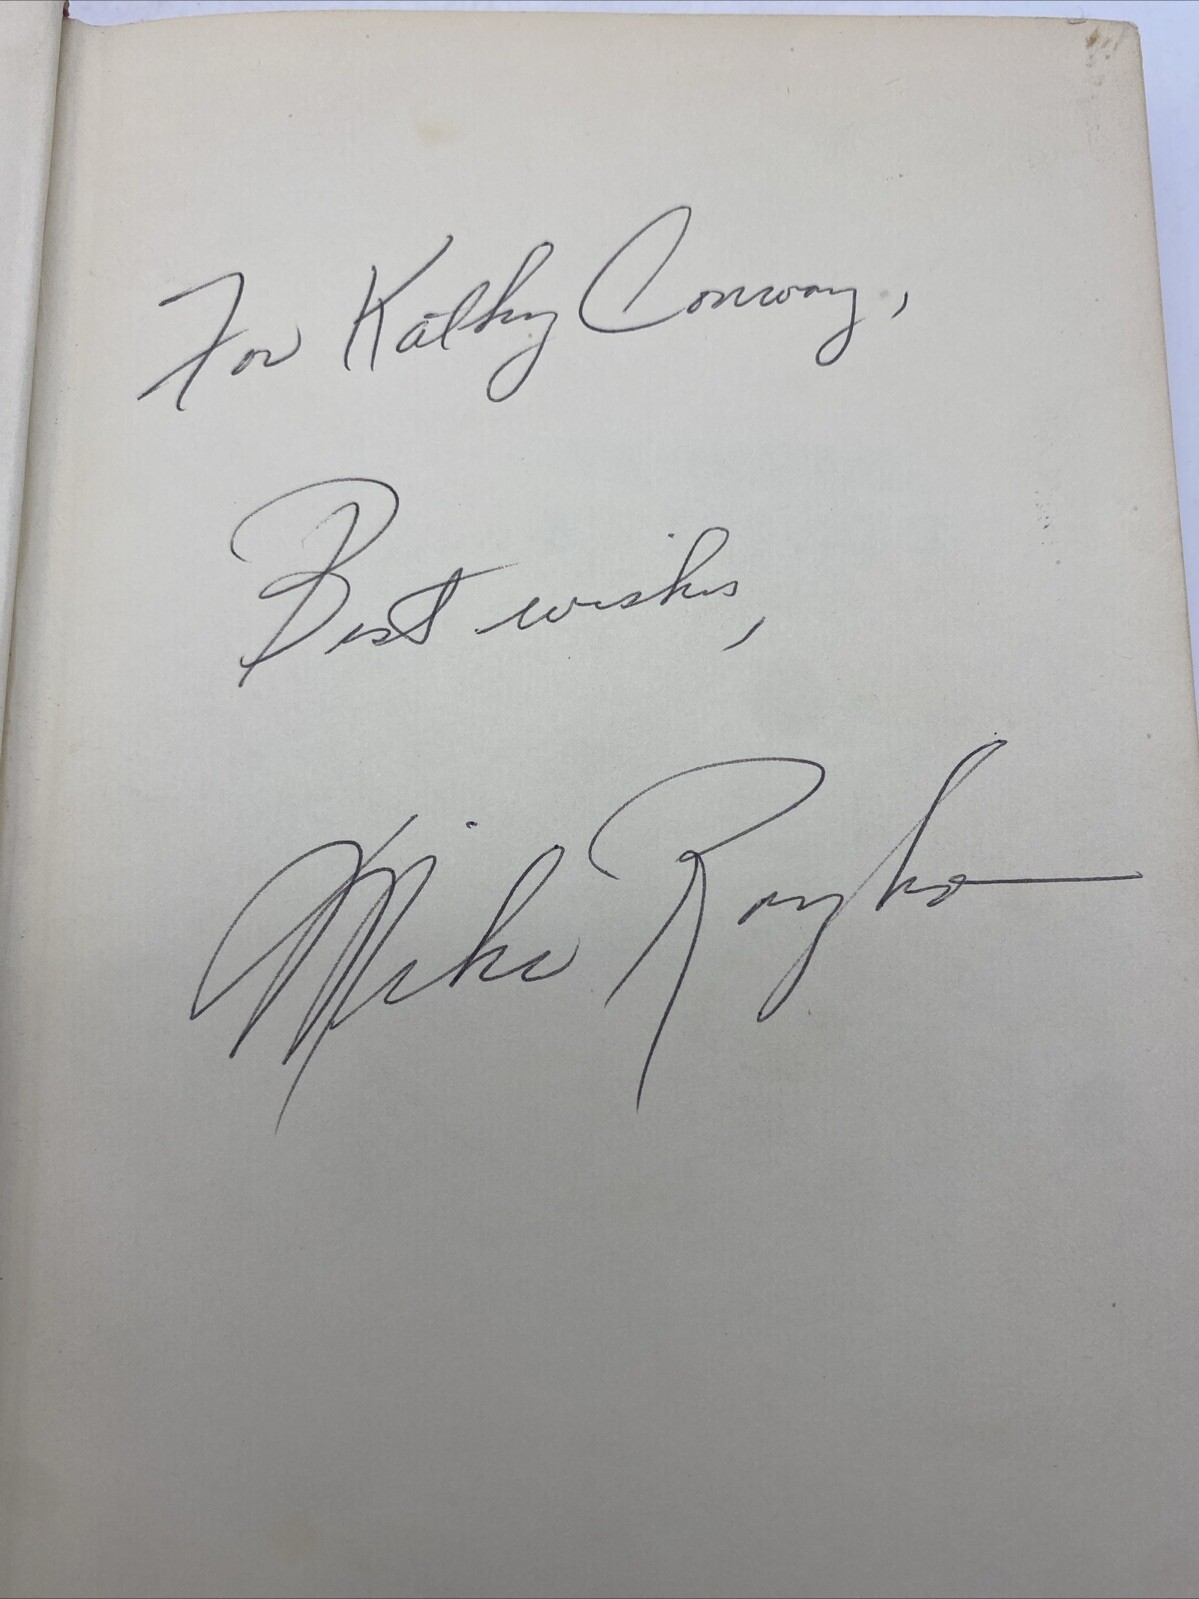 For Kathy Conway,
Best wishes,
Mike Royko